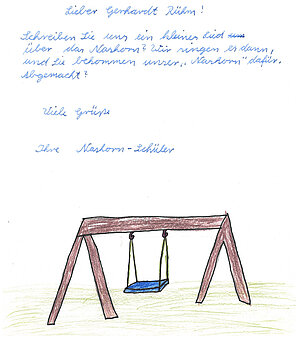 Lieber Gerhardt Rühm!
Schreiben Sie uns ein kleines Lied
über das Nashorn? Wir singen es dann,
und Sie bekommen unser „Nashorn" dafür.
Abgemacht?
Viele Grüße
Ihre Nashorn-Schüler